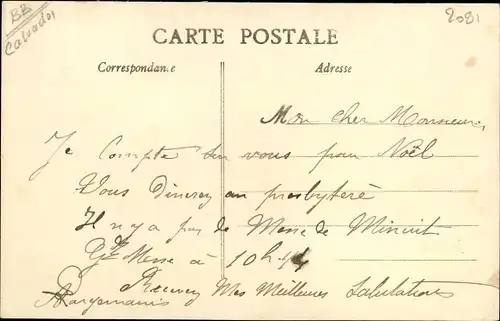 BB
Calvados
2091
CARTE POSTALE
Correspondance
Adresse
Mon cher Monsieur,
Je compte sur vous pour Noël
Vous dinerez au presbytère
Il n'y a pas de Messe de Minuit
Gde Messe à 10h
Recevez Mes Meilleures Salutations